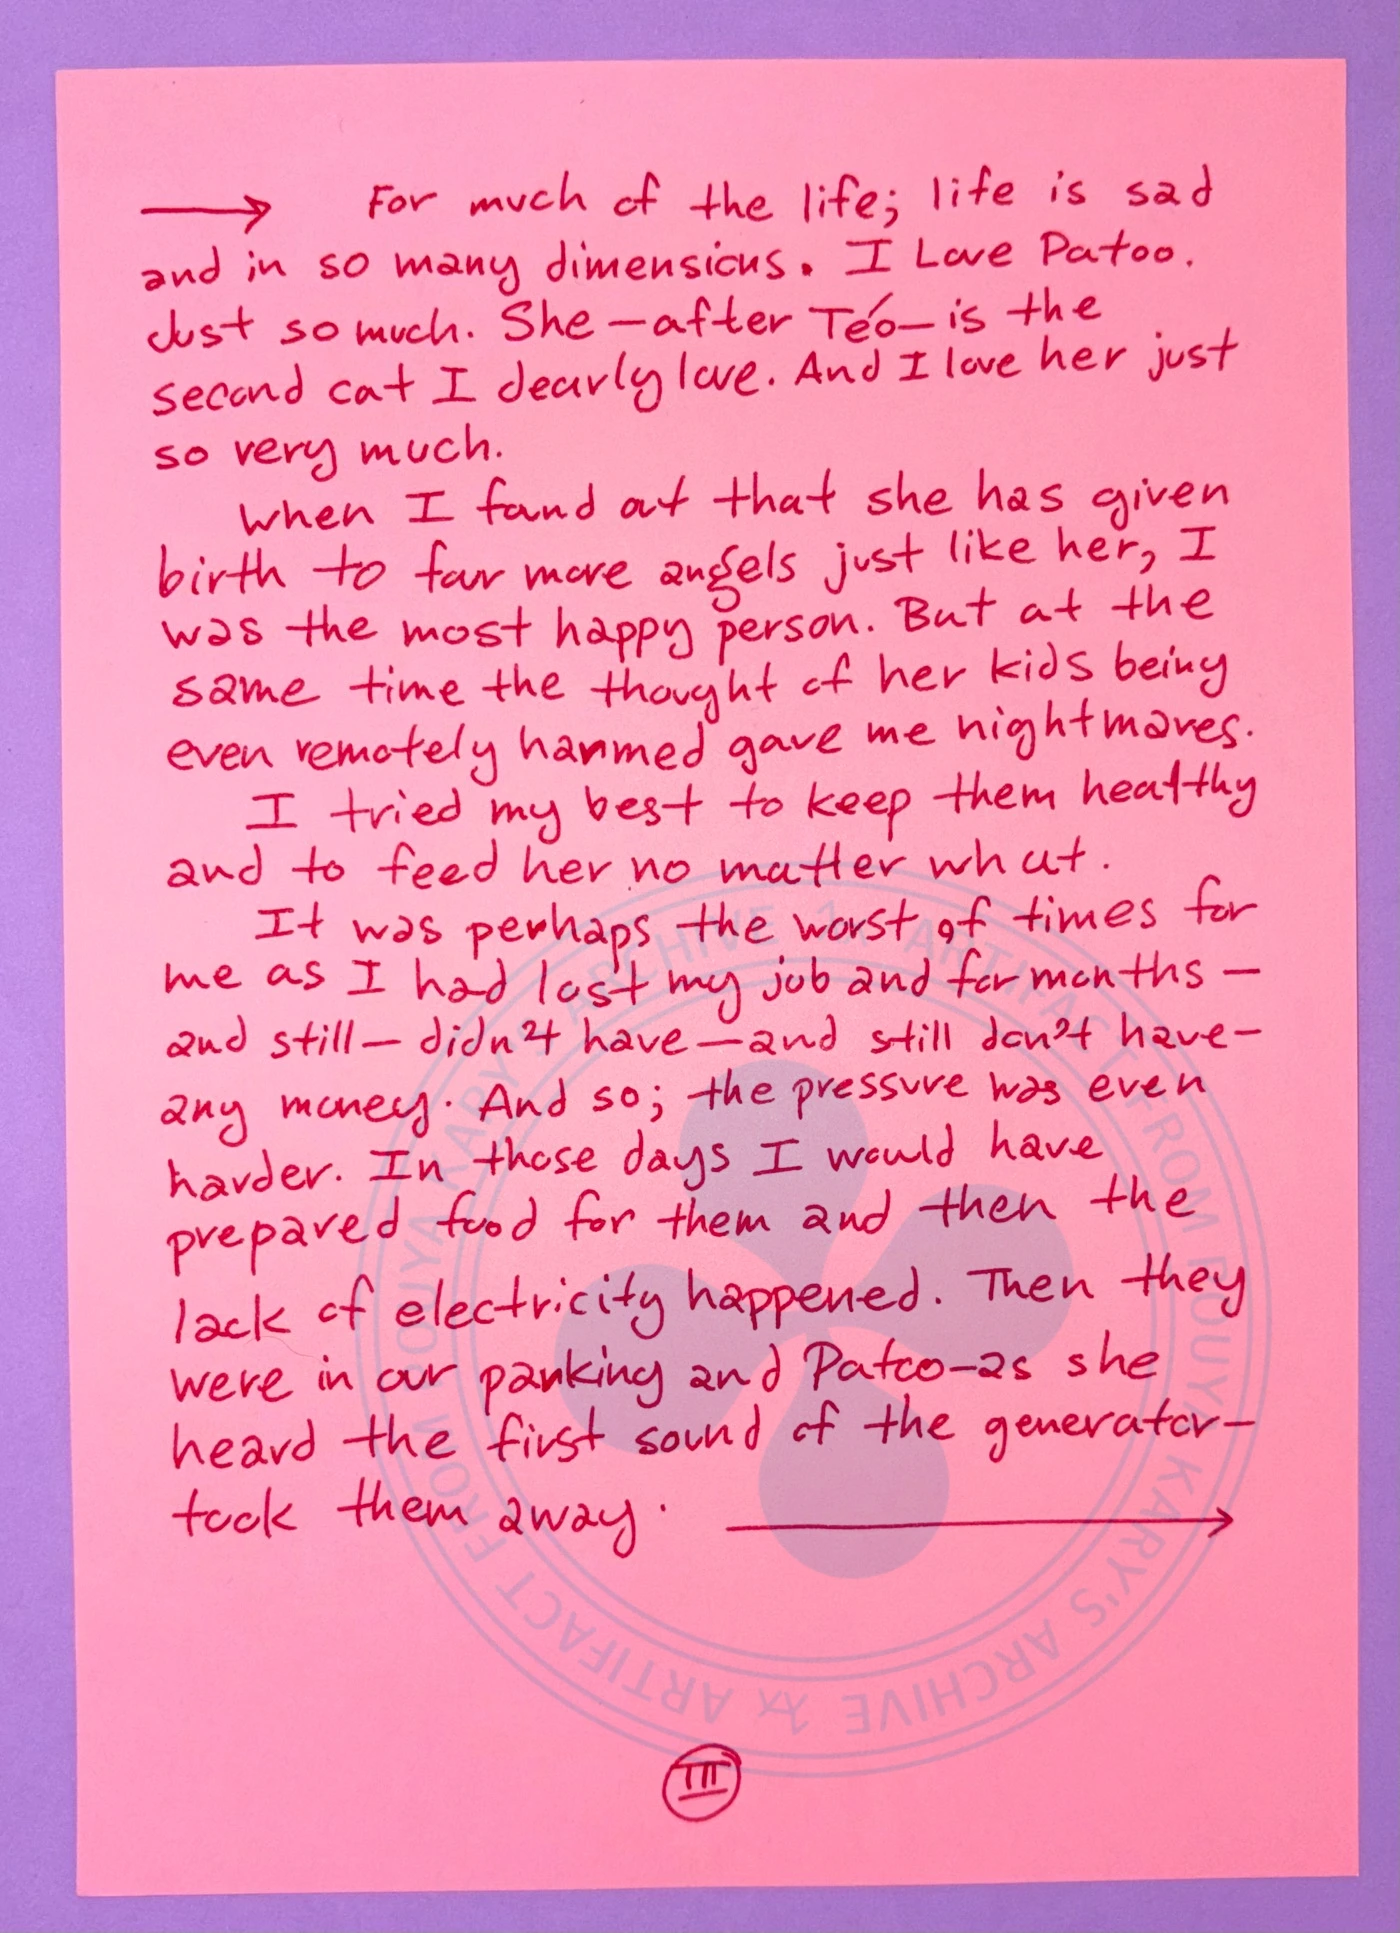 → For much of the life; life is sad
and in so many dimensions. I Love Patoo.
Just so much. She —after Téo— is the
second cat I dearly love. And I love her just
so very much.
When I found out that she has given
birth to four more angels just like her, I
was the most happy person. But at the
same time the thought of her kids being
even remotely harmed gave me nightmares.
I tried my best to keep them healthy
and to feed her no matter what.
It was perhaps the worst of times for
me as I had lost my job and for months —
and still — didn't have — and still don't have —
any money. And so; the pressure was even
harder. In those days I would have
prepared food for them and then the
lack of electricity happened. Then they
were in our parking and Patoo—as she
heard the first sound of the generator—
took them away. →
III
ARTIFACT FROM POUYA KARY'S ARCHIVE
ARTIFACT FROM POUYA KARY'S ARCHIVE